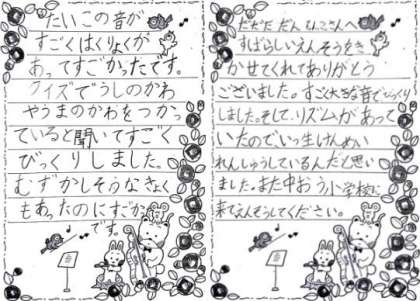 たいこの音が
すごくはくりょくが
あってすごかったです。
クイズでうしのかわ
やうまのかわをつかっ
ていると聞いてすごく
びっくりしました。
むずかしそうなきょく
もあったのにすごか
です。
すばらしいえんそうをき
かせてくれてありがとう
ございました。すごく大きな音でびっくり
しました。そして、リズムがあって
いたので、いっ生けんめい
れんしゅうしているんだと思い
ました。また中おう小学校に
来てえんそうしてください。